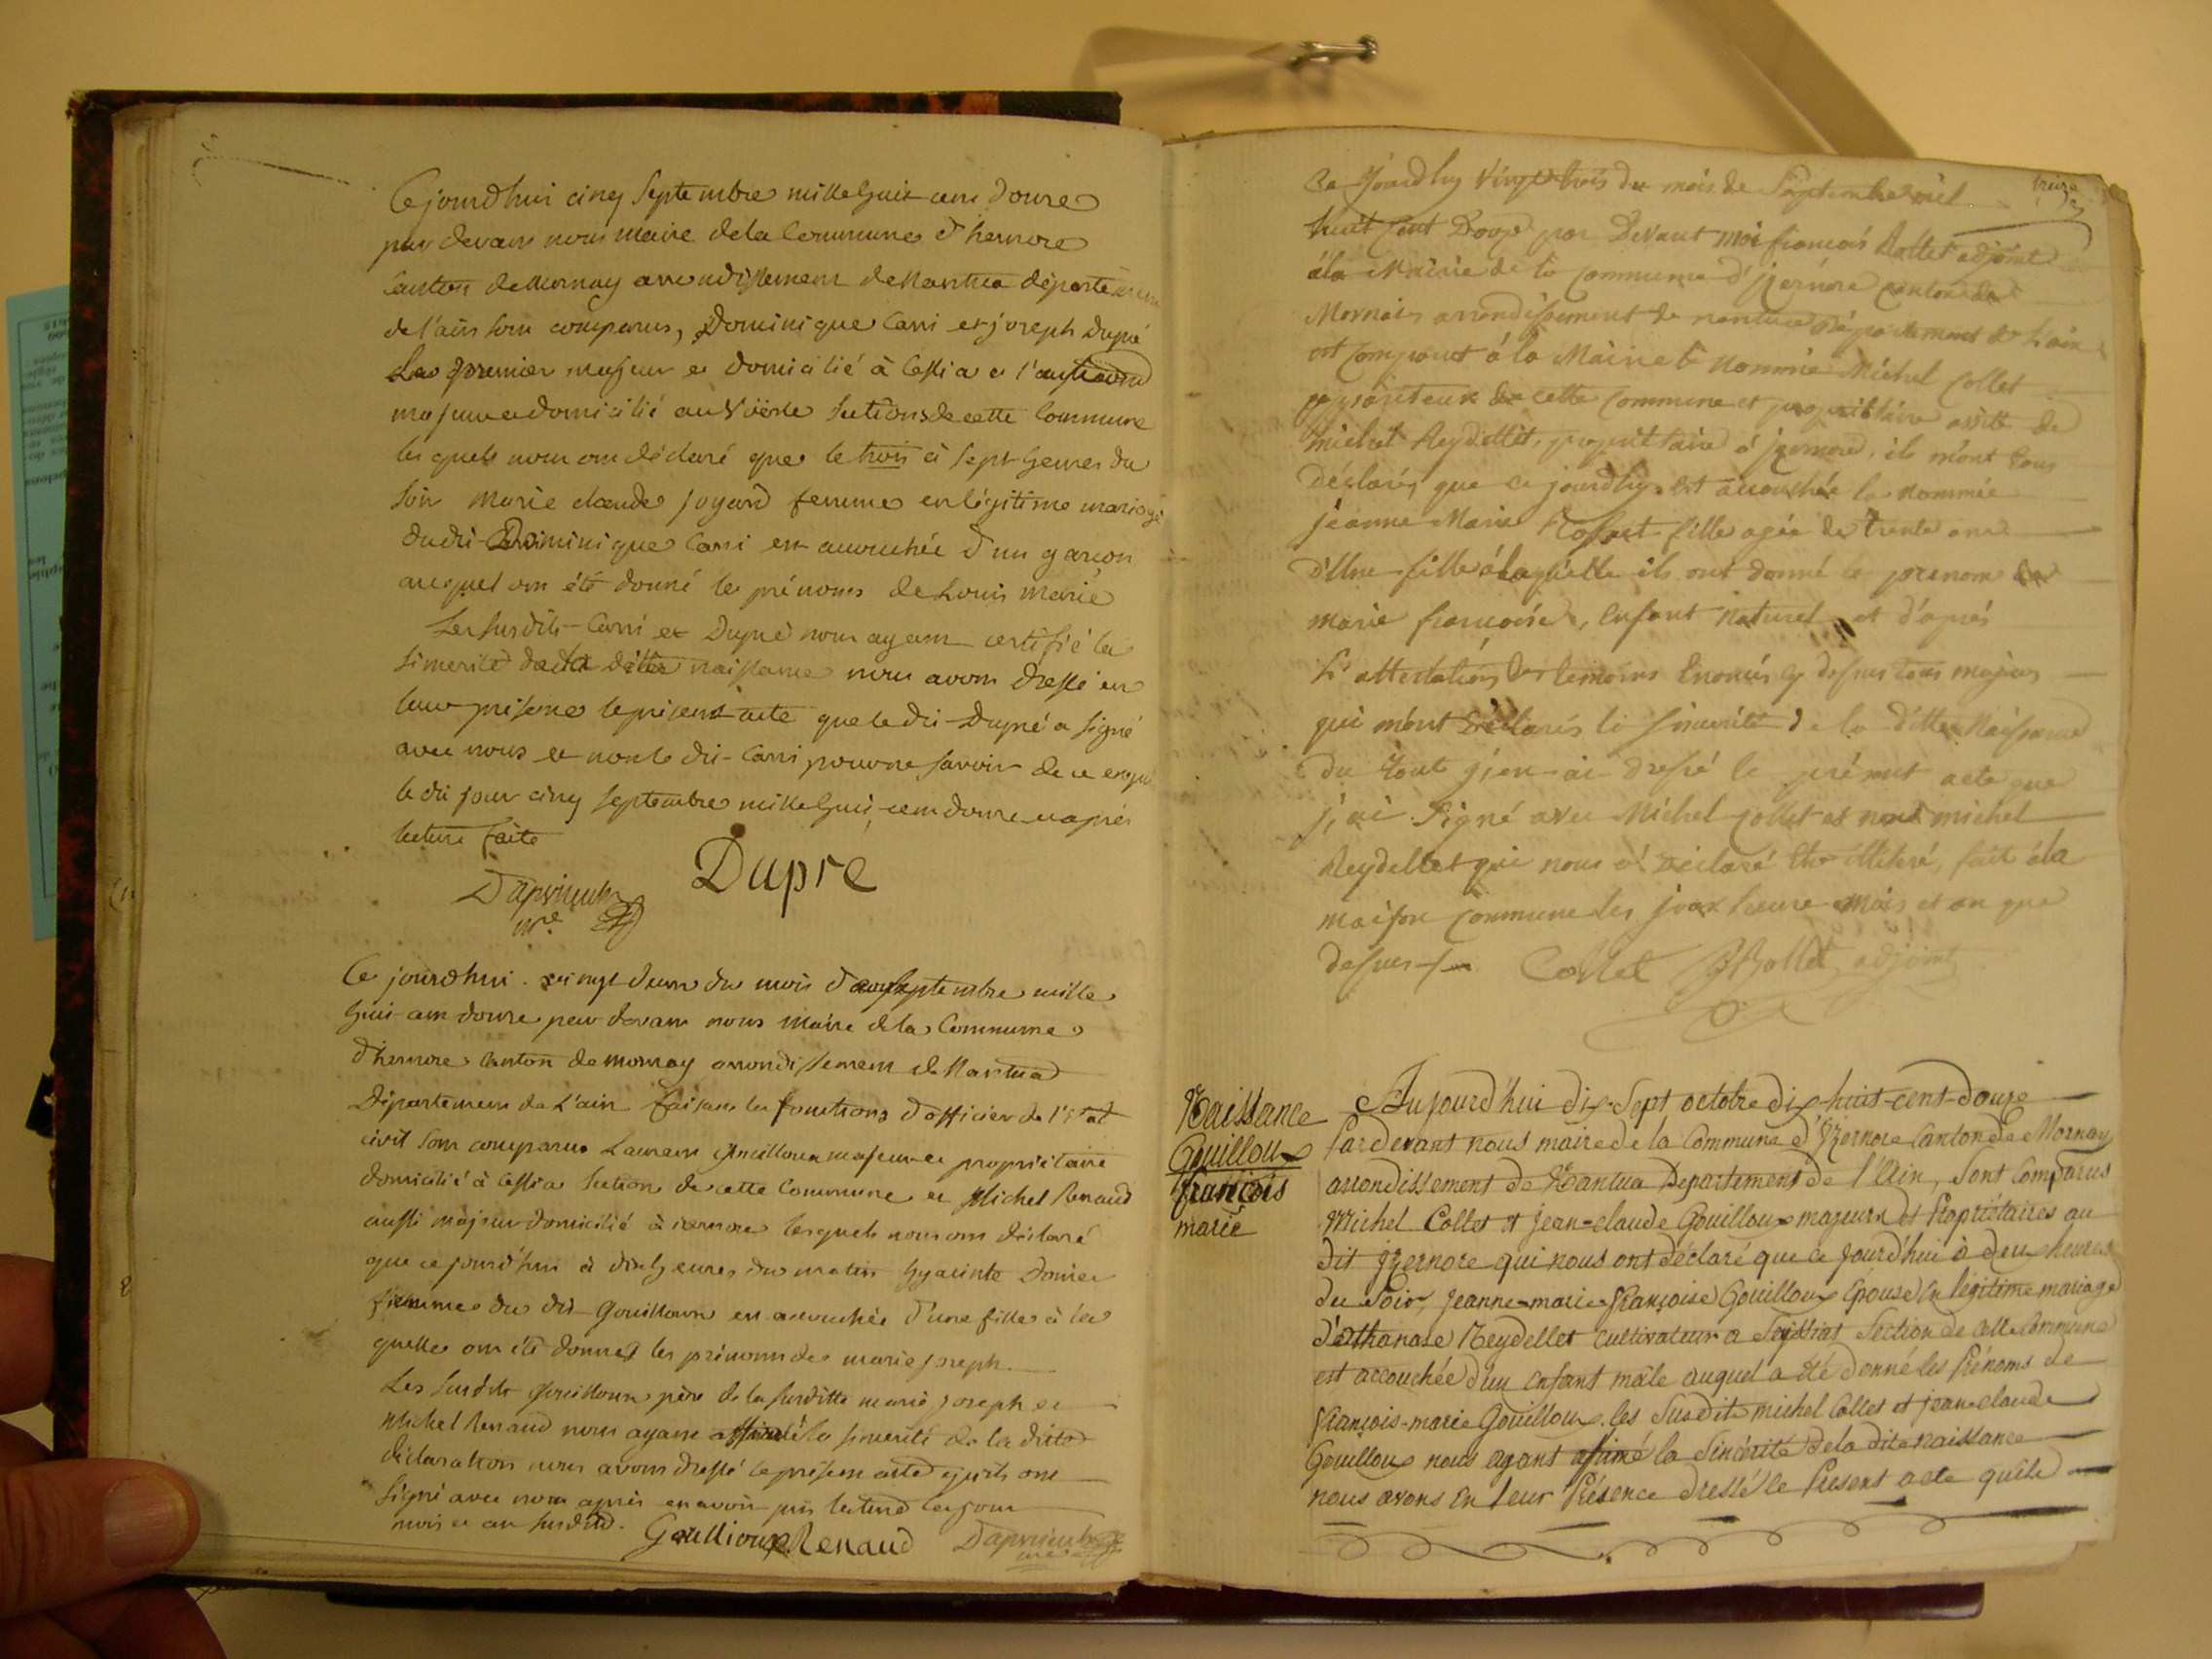 Cejourdhui cinq Septembre mille huit cent douze
par devant nous maire de la Commune d'hernore
Canton de Mornay arrondissement de Nantua département
de l'ain sont comparus, Dominique Carri et joseph Dupré
Le premier majeur et domicilié à Cessia et l'autre
majeur et domicilié au Voërle sections de cette Commune
les quels nous ont déclaré que le trois à sept heures du
soir marie claude joyard femme en légitime mariage
du dit Dominique Carri est accouchée d'un garçon
auquel ont été donné les prénoms de Louis marie
Les susdits Carri et Dupré nous ayant certifié la
sincerité de la ditte naissance nous avons dressé en
leur présence le présent acte que le dit Dupré a signé
avec nous et non le dit Carri pour ne savoir de ce enquis
le dit jour cinq septembre mille huit cent douze et après
lecture faite
Dupré
mre
Ce jourdhui vingt deux du mois de septembre mille
huit cent douze par devant nous Maire de la Commune
d'hernore Canton de mornay arrondissement de Nantua
Département de L'ain faisant les fonctions d'officier de l'état
civil sont comparus Laurent Gouilloux majeur et propriétaire
domicilié à Cessia Section de cette Commune et Michel Renaud
aussi majeur domicilié à izernore lesquels nous ont déclaré
que ce jourd'hui à dix heures du matin hyacinte
femme du dit Gouilloux est accouchée d'une fille à la
quelle ont été donnés les prénoms de marie joseph.
Les susdits Gouilloux père de la susditte marie joseph et
Michel Renaud nous ayant affirmé la sincerité de la ditte
déclaration nous avons dressé le présent acte qu'ils ont
signé avec nous après en avoir pris lecture les jour
mois et an susdits.
Goullioux Renaud
treize
Ce Jourdhuy Vingt trois du mois de Septembre mil
huit Cent Douze par Devant moi francois Rollet adjoint
à la Mairie de la Commune d'izernore canton de
Mornais arrondissement de nantua département de L'ain
est comparut à la Mairie le Nommé Michel Collet
de cette Commune et propriétaire assisté de
Michel Reydellet, propriétaire à izernore, ils m'ont tous
Déclarés que ce jourdhuy est accouchée la nommée
jeanne Marie fille agée de trente ans
d'Une fille à laquelle ils ont donné le prenom de
marie francoise, Enfant Naturel et d'après
L'attestation des temoins Enoncés cy dessus tous majeurs
qui m'ont Déclarés la sincerité de la ditte Naissance
du tout j'en ai dressé le présent acte que
j'ai Signé avec Michel Collet et non michel
Reydellet qui nous a Déclaré être illitéré, fait à la
maison Commune les jour heure mois et an que
dessus Collet Rollet adjoint
Naissance
Gouilloux
françois
marie
Aujourd'hui dix-Sept octobre dix huit-cent-douze
Pardevant nous maire de la Commune d'Izernore Canton de Mornay
arrondissement de Nantua Departement de l'Ain, Sont Comparus
Michel Collet et jean-claude Gouilloux majeurs et Propriétaires au
dit Izernore qui nous ont déclaré que ce jourd'hui à deux heures
du Soir, Jeanne-marie-françoise Gouilloux Epouse en légitime mariage
d'Athanase Reydellet cultivateur a Section de cette Commune
est accouchée d'un enfant mâle auquel a été donné les Prénoms de
François-marie Gouilloux. les Susdits michel Collet et jean-claude
Gouilloux nous ayant afirmé la Sincérité de la dite naissance
nous avons En leur Présence dressé le Présent acte qu'ils